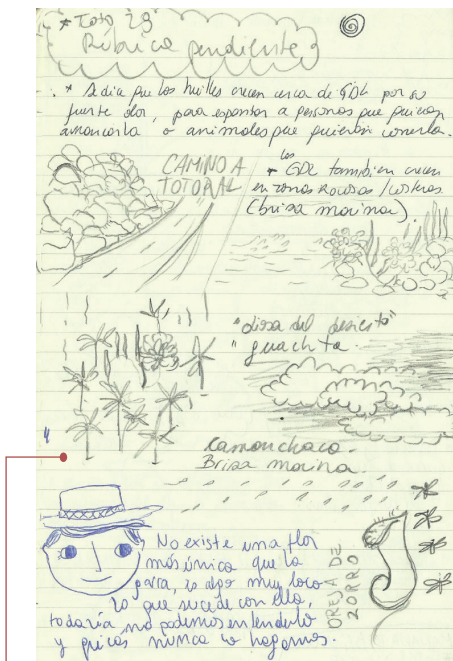 * Foto 29
Rúbrica pendiente
* Se dice que los huilles crecen cerca de GDL por su
fuerte olor, para espantar a personas que quieran
arrancarla o animales que quieran comerla.
CAMINO A
TOTORAL
* las GDL también crecen
en zonas rocosas / costeras
(brisa marina).
"diosa del desierto"
" guachita.
Camanchaca.
Brisa marina.
No existe una flor
más única que la
garra, es algo muy loco
lo que sucede con ella,
todavía no podemos entenderlo
y quizás nunca lo hagamos.
OREJA DE
ZORRO